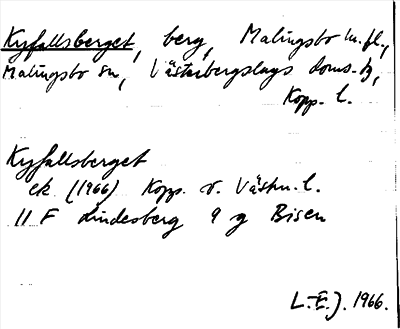 Kyfallsberget, berg, Malingsbo m.fl.,
Malingsbo sn, Västerbergslags doms. h,
Kopp. l.
Kyfallsberget
ek. (1966) Kopps. o. Västm. l.
11 F Lindesberg 9 g Bisen
L-E.J. 1966.